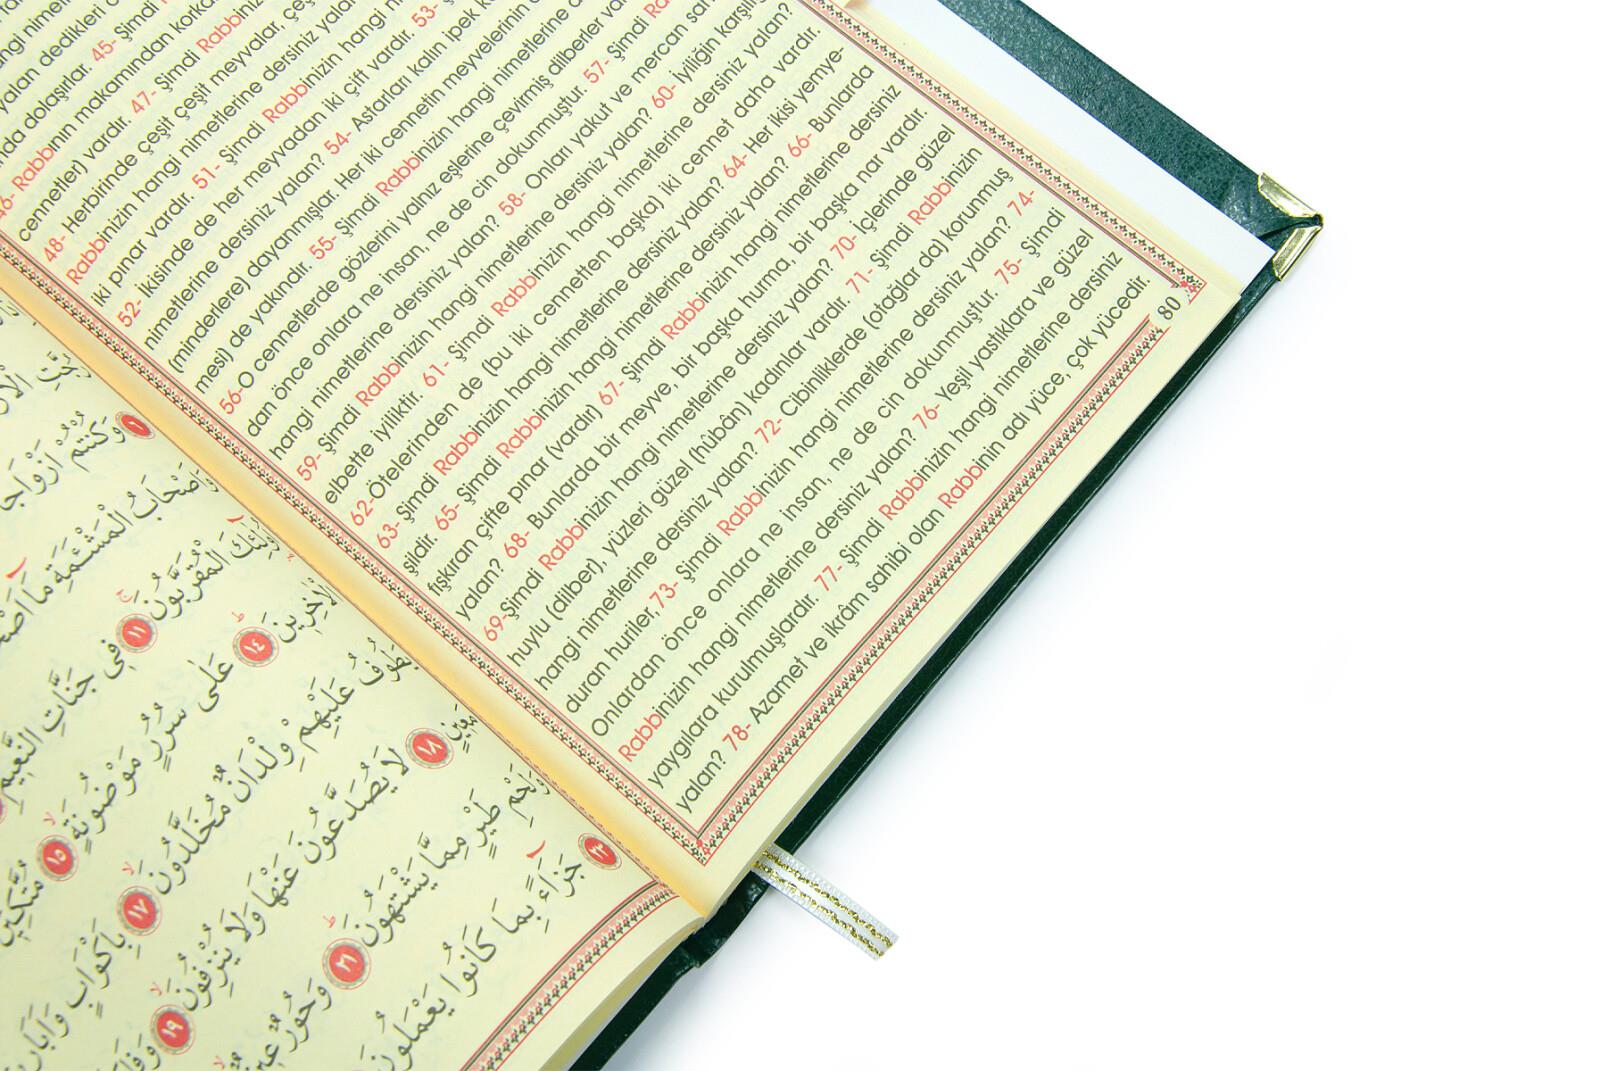 yalan dedikleri
nda dolaşırlar. 45- Şimdi
46- Rabbinin makamından
cennetler) vardır. 47- Şimdi Rabbinizin
48- Herbirinde çeşit çeşit meyvalar,
Rabbinizin hangi nimetlerine dersiniz
iki pınar vardır. 51- Şimdi Rabbinizin hangi
52- İkisinde de her meyvadan iki çift vardır. 53-
nimetlerine dersiniz yalan? 54- Astarları kalın ipek
(minderlere) dayanmışlar. Her iki cennetin meyvelerinin
mesi) de yakındır. 55- Şimdi Rabbinizin hangi nimetlerine
56-O cennetlerde gözlerini yalnız eşlerine çevirmiş dilberler
dan önce onlara ne insan, ne de cin dokunmuştur. 57- Şimdi
hangi nimetlerine dersiniz yalan? 58- Onları yakut ve mercan
59- Şimdi Rabbinizin hangi nimetlerine dersiniz yalan? 60- İyiliğin
elbette iyiliktir. 61- Şimdi Rabbinizin hangi nimetlerine dersiniz yalan?
62-Ötelerinden de (bu iki cennetten başka) iki cennet daha vardır.
63- Şimdi Rabbinizin hangi nimetlerine dersiniz yalan? 64- Her ikisi yemye-
şildir. 65- Şimdi Rabbinizin hangi nimetlerine dersiniz yalan? 66- Bunlarda
fışkıran çifte pınar (vardır) 67- Şimdi Rabbinizin hangi nimetlerine dersiniz
yalan? 68- Bunlarda bir meyve, bir başka hurma, bir başka nar vardır.
69-Şimdi Rabbinizin hangi nimetlerine dersiniz yalan? 70- İçlerinde güzel
huylu (dilber), yüzleri güzel (hûbân) kadınlar vardır. 71- Şimdi Rabbinizin
hangi nimetlerine dersiniz yalan? 72- Cibinliklerde (otağlar da) korunmuş
duran huriler,73- Şimdi Rabbinizin hangi nimetlerine dersiniz yalan? 74-
Onlardan önce onlara ne insan, ne de cin dokunmuştur. 75- Şimdi
Rabbinizin hangi nimetlerine dersiniz yalan? 76- Yeşil yastıklara ve güzel
yaygılara kurulmuşlardır. 77- Şimdi Rabbinizin hangi nimetlerine dersiniz
yalan? 78- Azamet ve ikrâm sahibi olan Rabbinin adı yüce, çok yücedir.
80
وَكُنْتُمْ اَزْوَاجًا
وَاَصْحَابُ الْمَشْـَٔمَةِ مَٓا
الْمُقَرَّبُونَ ١١ فٖى جَنَّاتِ النَّعٖيمِ
الْاٰخِرٖينَ ١٤ عَلٰى سُرُرٍ مَوْضُونَةٍ ١٥
يَطُوفُ عَلَيْهِمْ وِلْدَانٌ مُخَلَّدُونَ ١٧ بِاَكْوَابٍ
مَعٖينٍ ١٨ لَا يُصَدَّعُونَ عَنْهَا وَلَا يُنْزِفُونَ ١٩
وَلَحْمِ طَيْرٍ مِمَّا يَشْتَهُونَ ٢١ وَحُورٌ عٖينٌ
جَزَٓاءً بِمَا كَانُوا يَعْمَلُونَ